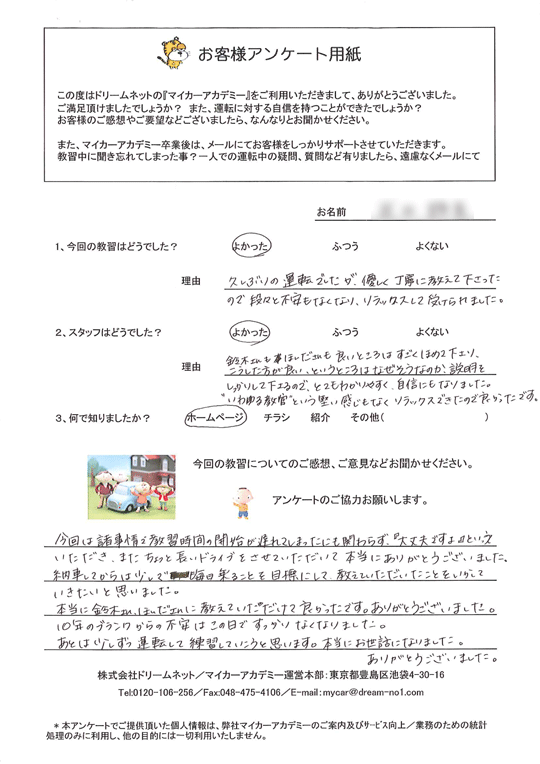 お客様アンケート用紙
この度はドリームネットの『マイカーアカデミー』をご利用いただきまして、ありがとうございました。
ご満足頂けましたでしょうか? また、運転に対する自信を持つことができたでしょうか?
お客様のご感想やご要望などございましたら、なんなりとお聞かせください。
また、マイカーアカデミー卒業後は、メールにてお客様をしっかりサポートさせていただきます。
教習中に聞き忘れてしまった事?一人での運転中の疑問、質問など有りましたら、遠慮なくメールにて
お名前
1、今回の教習はどうでした? よかった ふつう よくない
理由 久しぶりの運転でしたが、優しく丁寧に教えて下さった
ので段々と不安もなくなり、リラックスして受けられました。
2、スタッフはどうでした? よかった ふつう よくない
鈴木さんも ほしださんも 良いところは すごくほめて下さり、
理由 こうした方が良い、というところは なぜそうなのか、説明を
しっかりして下さるので、とてもわかりやすく、自信にもなりました。
"いわゆる教官"という堅い感じもなく リラックスできたので良かったです。
3、何で知りましたか? ホームページ チラシ 紹介 その他( )
今回の教習についてのご感想、ご意見などお聞かせください。
アンケートのご協力お願いします。
今回は諸事情で教習時間の開始が遅れてしまったにも関わらず、『大丈夫ですよ』といって
いただき、またちょっと長いドライブをさせていただいて 本当にありがとうございました。
納車してからは少しで 毎日乗ることを目標にして、教えていただいたことをいかして
いきたいと思いました。
本当に鈴木さん、ほしださんに教えていただけて良かったです。ありがとうございました。
10年のブランクからの不安はこの日ですっかりなくなりました。
あとは少しずつ運転して練習していこうと思います。本当にお世話になりました。
ありがとうございました。
株式会社ドリームネット/マイカーアカデミー運営本部:東京都豊島区池袋4-30-16
Tel:0120-106-256/Fax:048-475-4106/E-mail:mycar@dream-no1.com
*本アンケートでご提供頂いた個人情報は、弊社マイカーアカデミーのご案内及びサービス向上/業務のための統計
処理のみに利用し、他の目的には一切利用いたしません。